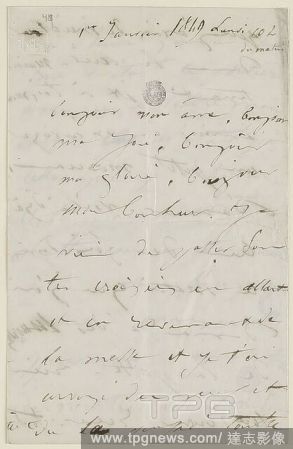 1er Janvier 1849 Lundi 10h
du matin
bonjour mon âme, bonjour
ma joie, bonjour
ma gloire, bonjour
mon bonheur. Je
viens de passer sous
tes croisées en allant
et en revenant de
la messe et je t'ai
envoyé des
du
TPG
www.tpgnews.com / 達志影像